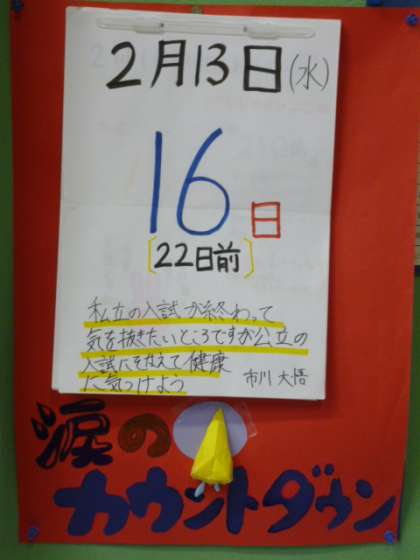 2月13日(水)
16日
[22日前]
私立の入試が終わって
気を抜きたいところですが公立の
入試にそなえて健康
に気つけよう
市川 大悟
涙の
カウントダウン